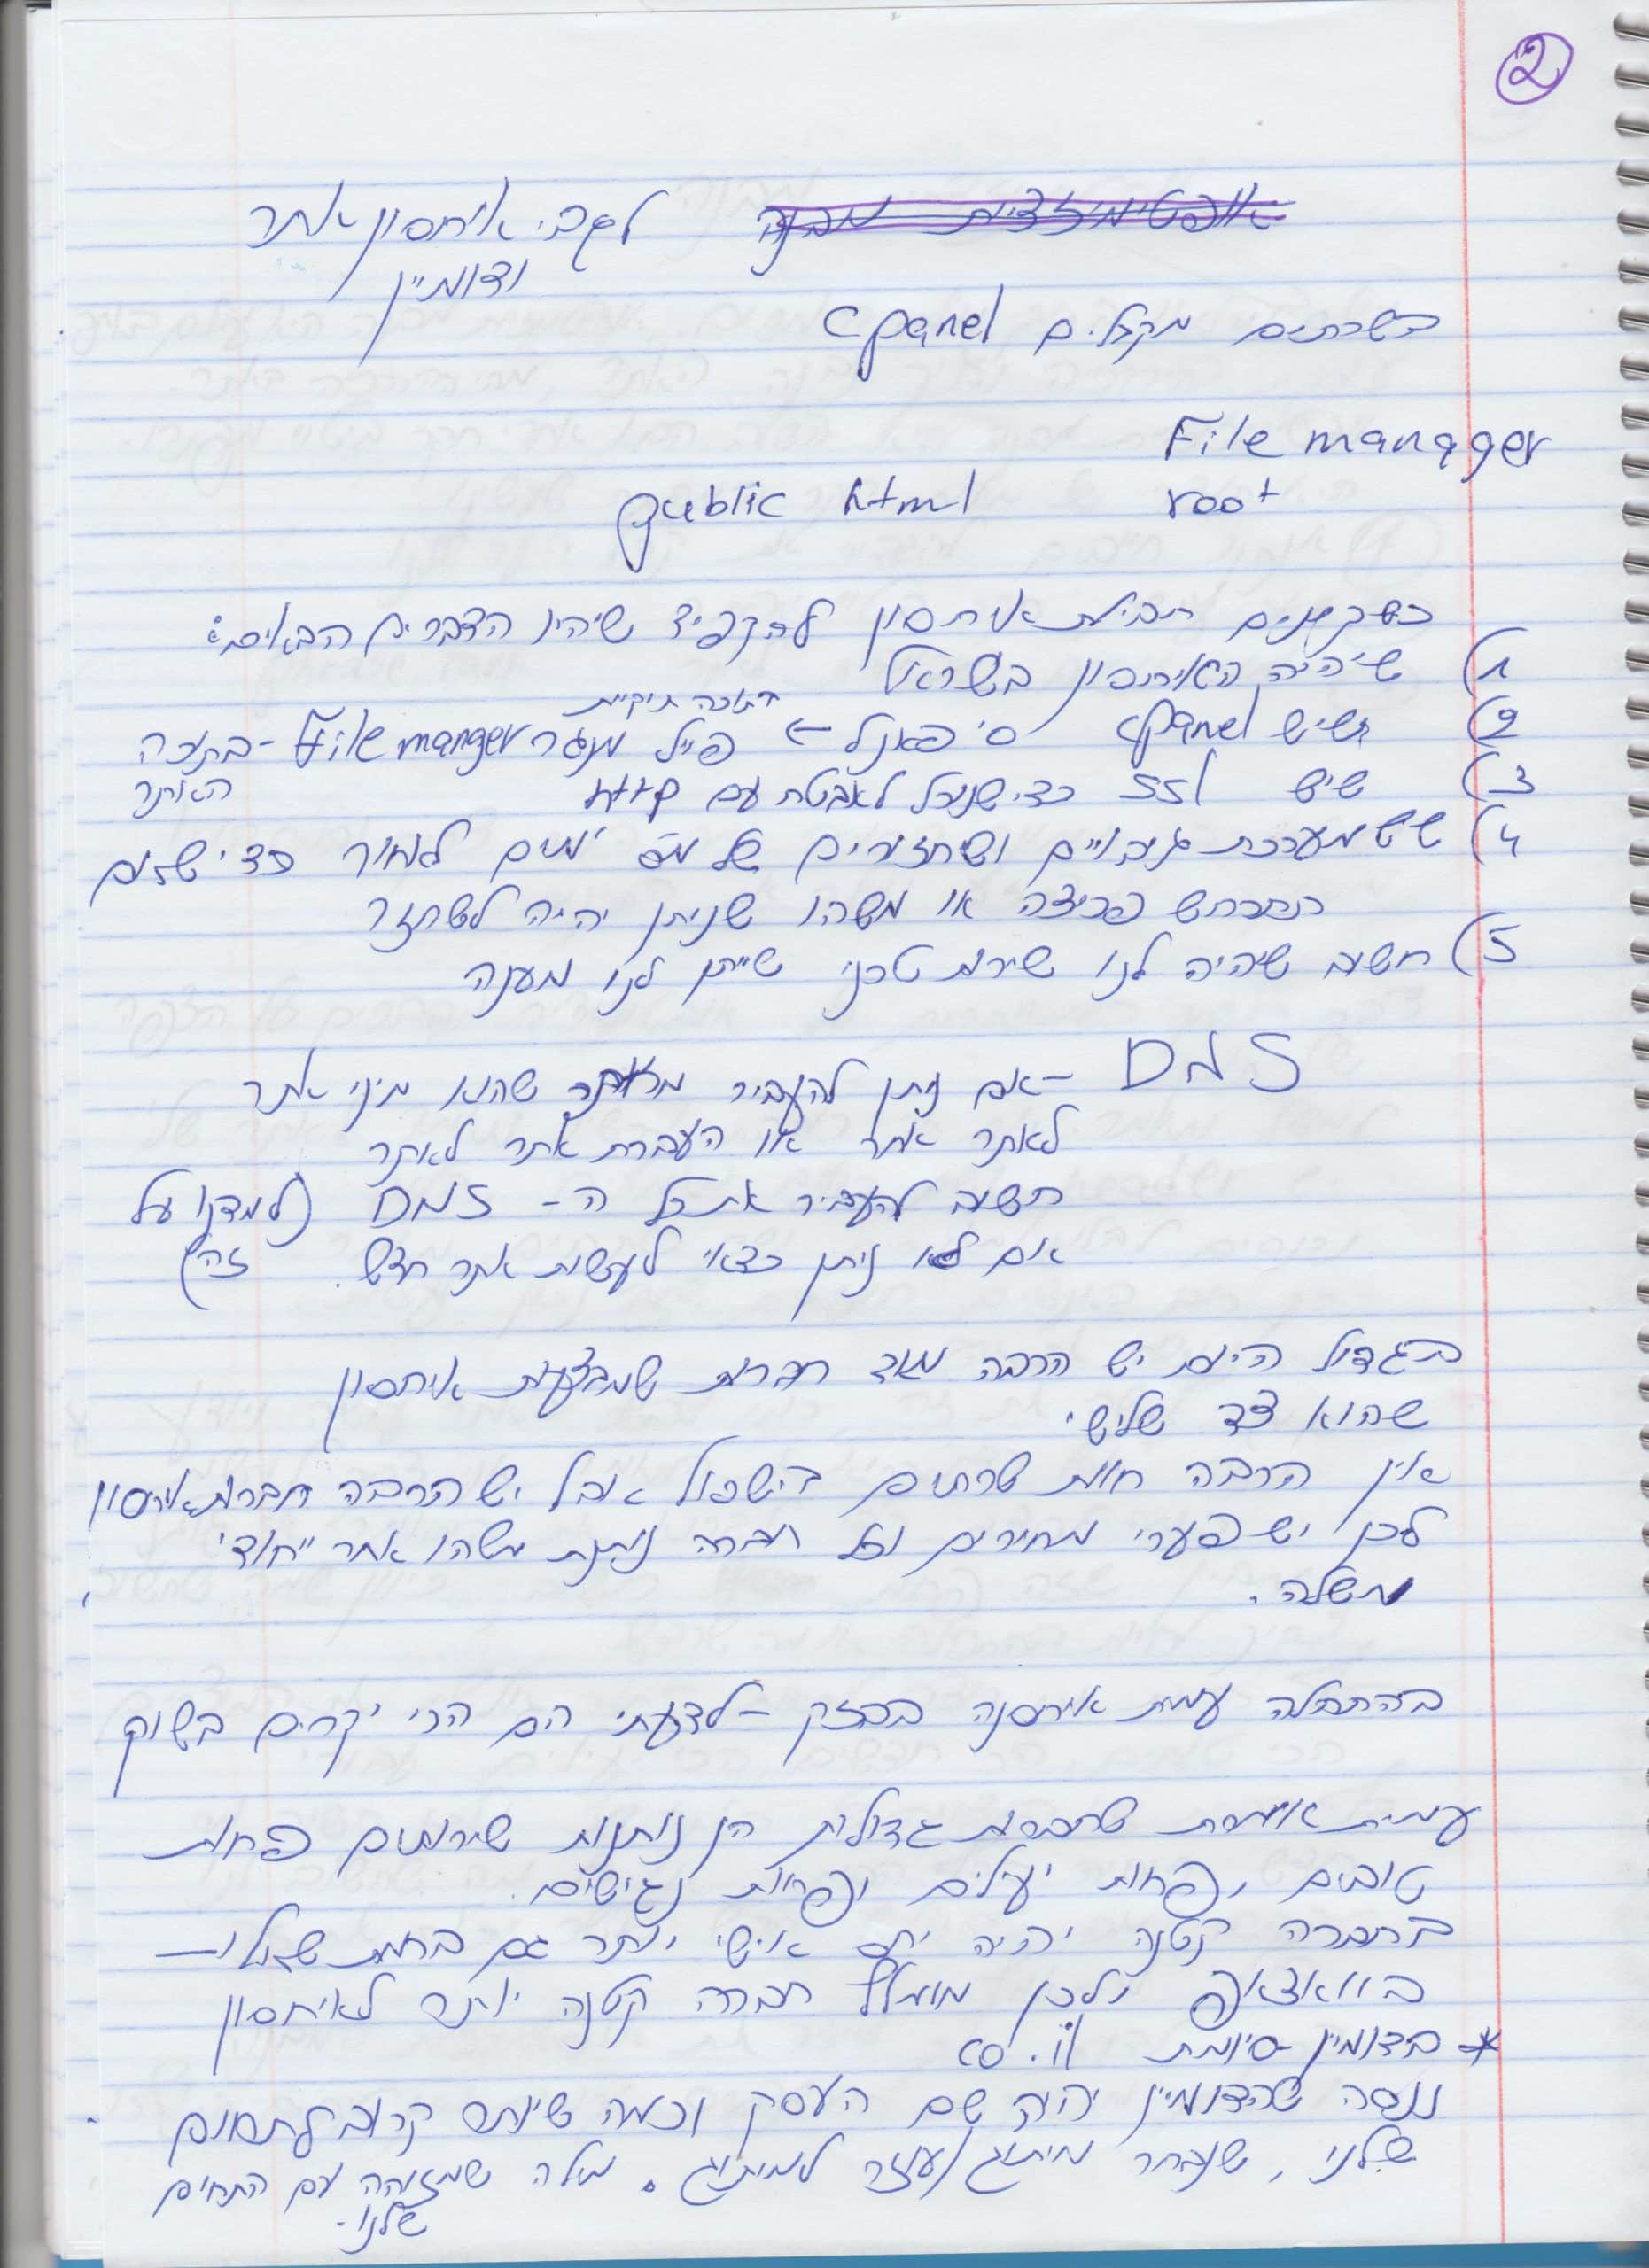 2
אופטימיזציית מבנה לגבי אחסון אתר
ודומיין
בשרתים מקבלים cpanel
File manager
root public html
כשקונים חבילת אחסון להקפיד שיהיו הדברים הבאים:
1) שיהיה האיחסון בישראל
2) שיש cpanel סי פאנל ← פייל מנגר File manger - בתוכה
תיקיית
האתר
3) שיש ssl כדי שנוכל לאבטח עם http
4) שש מערכת גיבויים ושיחזורים של ימים לאחור כדי שאם
תתרחש פריצה או משהו שניתן יהיה לשחזר
5) חשוב שיהיה לנו שירות טכני שייתן לנו מענה
DNS - אם ניתן להעביר שהוא מיני אתר
לאתר אחר או העברת אתר לאתר
חשוב להעביר את כל ה- DNS (למדנו על
אם לא ניתן כדאי לעשות אתר חדש. זה)
בגדול היום יש הרבה מאוד חברות שמבצעות איחסון
שהוא צד שלישי
אין הרבה חוות שרתים בישראל אבל יש הרבה חברות איחסון
לכן יש פערי מחירים וכל חברה נותנת משהו אחר ייחודי
משלה.
בהתחלה עמית איחסנה בבזק - לדעתי הם הכי יקרים בשוק
עמית אומרת שחברות גדולות הן נותנות שירותים פחות
טובים, פחות יעילים ופחות נגישים.
בחברה קטנה יהיה יחס אישי יותר גם ברמת שאלו -
בוואצאפ ולכן מומלץ חברה קטנה יותר לאיחסון
* בדומיין סיומת co.il
ננסה שהדומיין יהיה שם העסק וכמה שיותר קרוב לתחום
שלנו, שנבחר מיתוג/עוזר למיתוג. מילה שמזוהה עם התחום
שלנו.